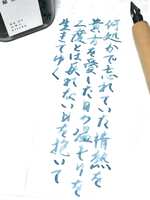 何処かで忘れていた情熱を
貴方を愛した日の温もりを
二度とは戻れない日を抱いて
生きてゆく